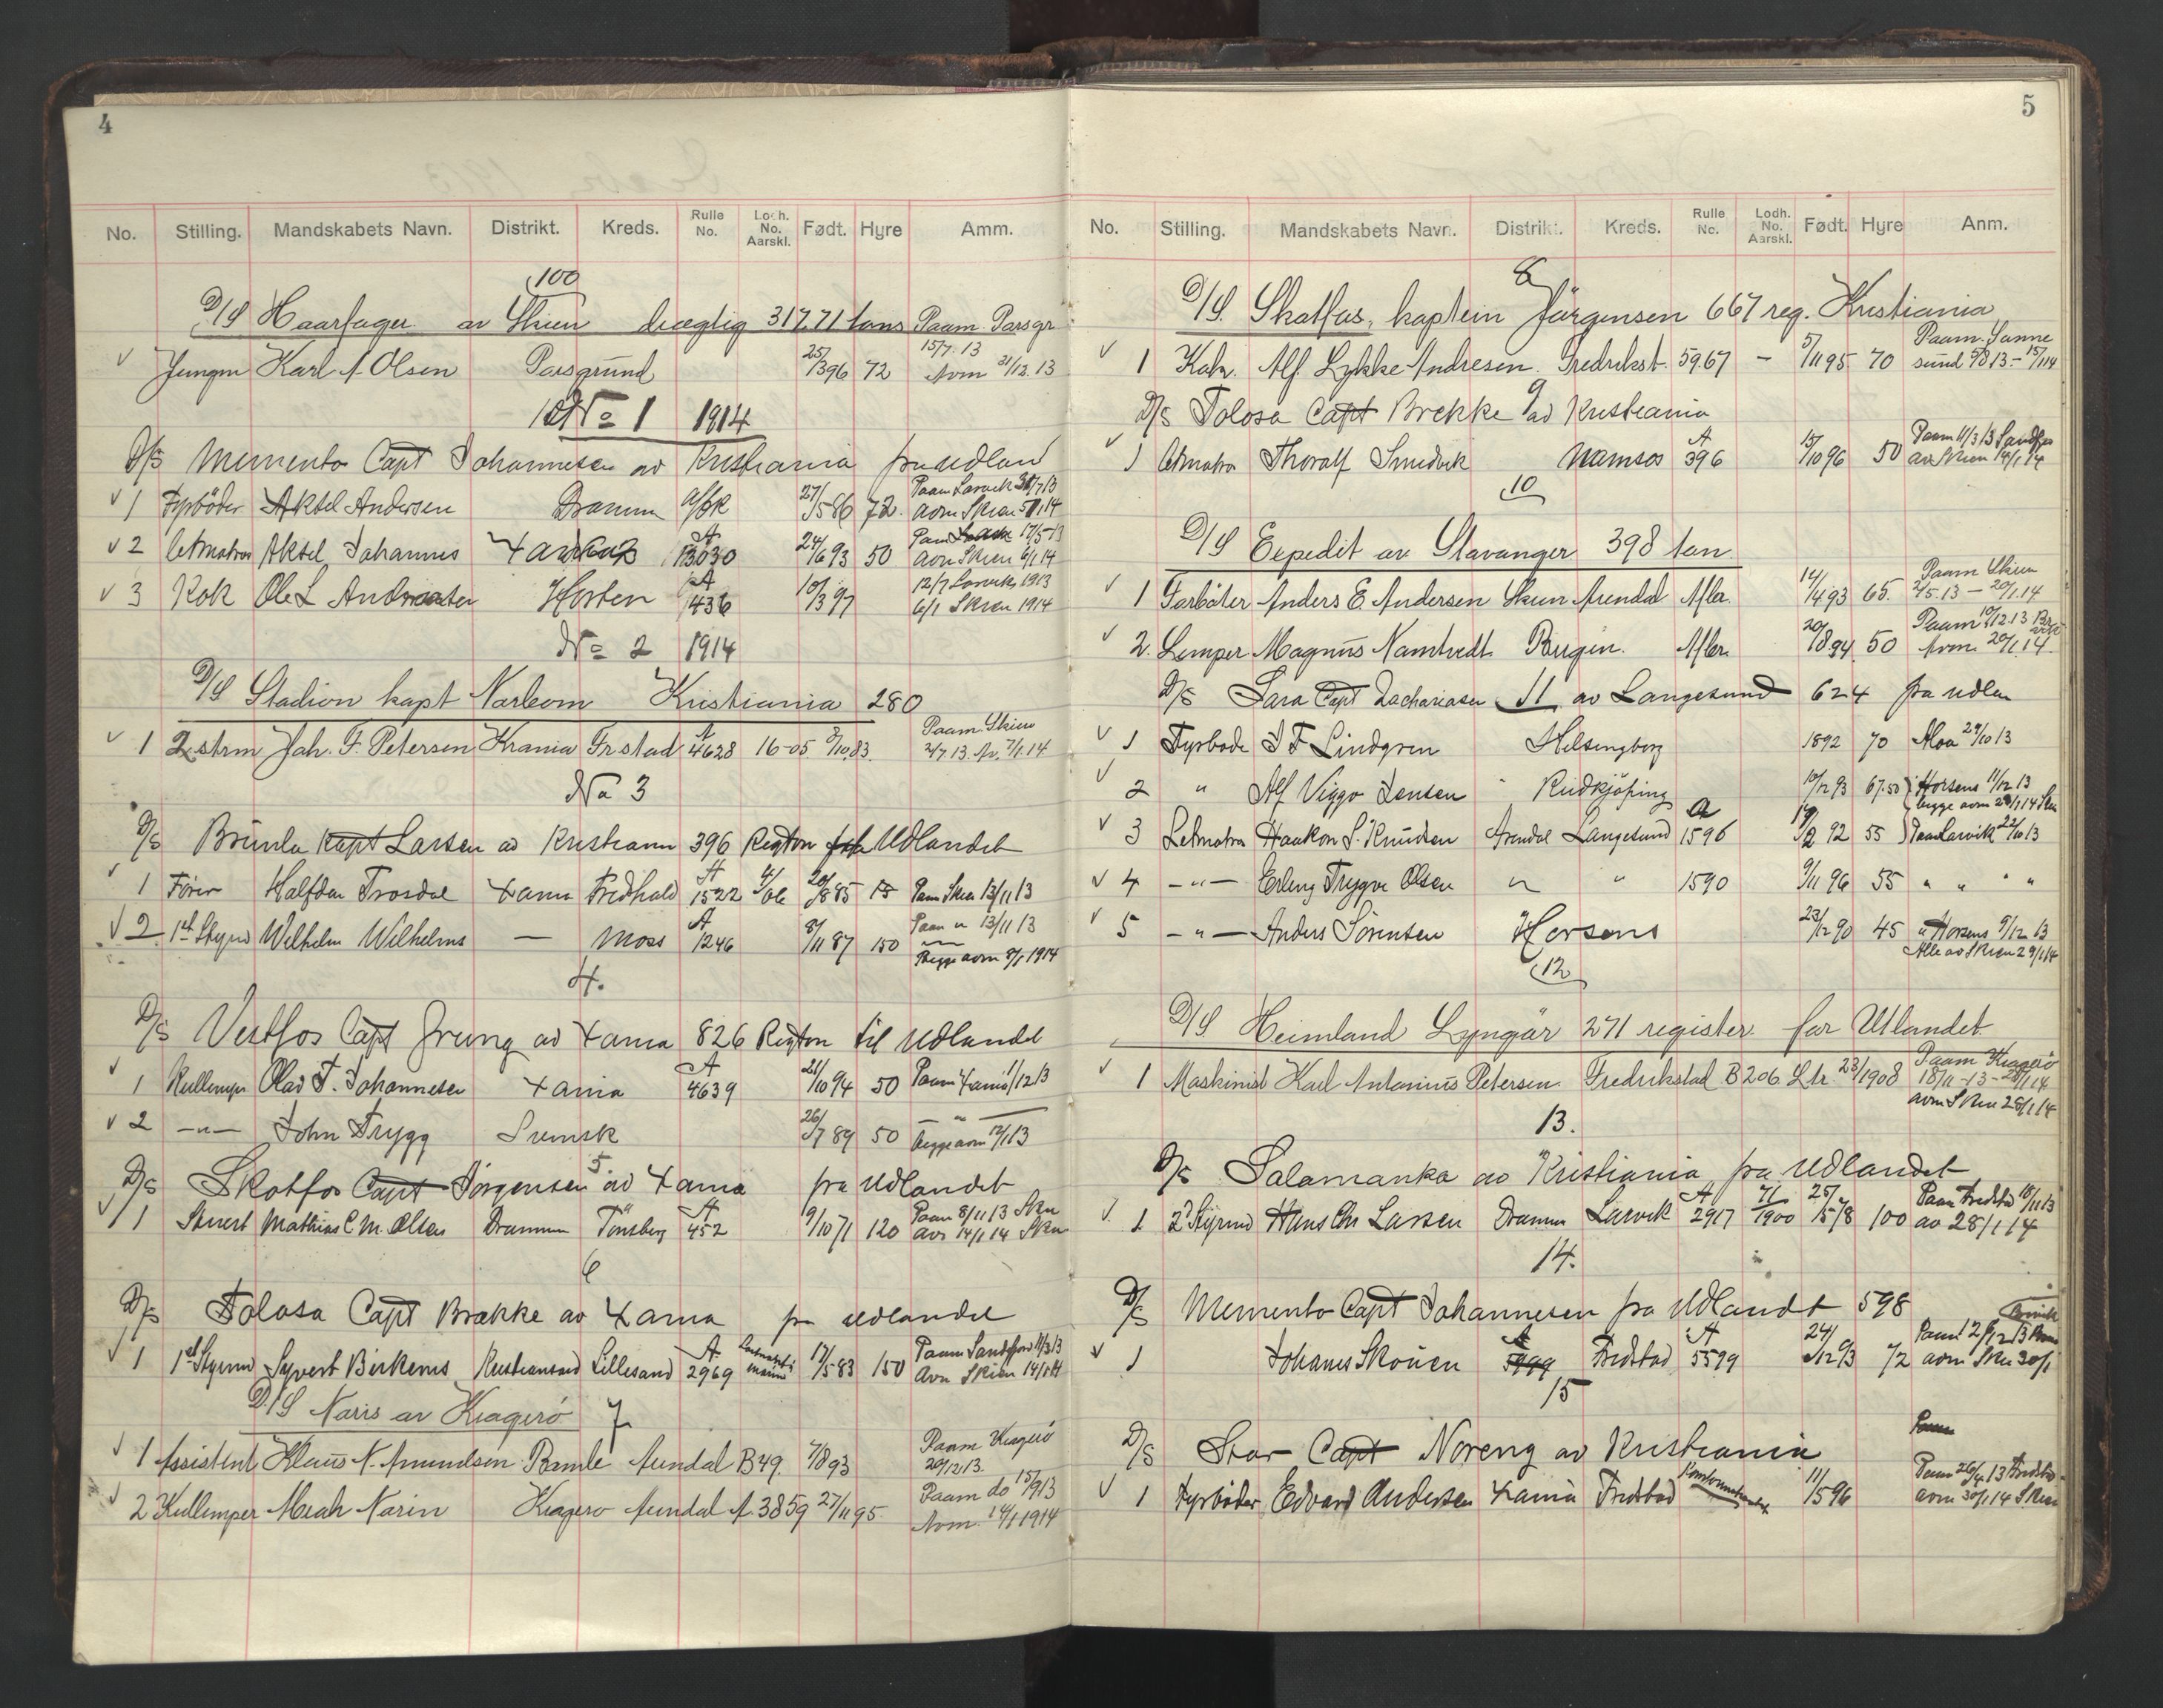 4
No. Stilling. Mandskabets Navn. Distrikt. Kreds. Rulle No. Lodh. No. Aarskl. Født. Hyre Amm.
100
D/S Haarfager av Skien drægtig 317.71 tons Paam. Porsgr
Jungm Karl A. Olsen Porsgrund 25/3 96 72 15/7.13 Avm 31/12.13
No 1 1914
D/S Memento Capt Johannesen av Kristiania fra udland
1 Fyrbøder Aksel Andersen Dramm 27/5 86 72. Paam Larvik 31/7 13 avm Skien 5/1 14
2 Letmatros Aksel Johannes A 13030 24/6 93 50 17/5-13 avm Skien 6/1 14
3 Kok Ole L Horten A 436 10/3 97 12/7 Larvik 1913 6/1 Skien 1914
No 2 1914
D/S Stadion kapt Kristiania 280
1 2 strm Joh. F. Petersen Krania Frstad A 4628 16-05 8/10 83. Paam. Skien 2/7 13. Av. 7/1.14
No 3
D/S Brunla Kapt Larsen av Kristiania 396 Regton Udlandet
1 Fører Halfdan Trosdal Xania Fredhald A 1522 4/06 20/8 85 15 Paam Skien 13/11 13
2 1st Styrm Wilhelm Wilhelms — Moss A 1246 8/11 87 150 Paam " 13/11 13 Begge avm 8/1 1914
4.
D/S Vestfos Capt Grung av Xania 826 Regton til Udlandet
1 Kullemper Olav T. Johannesen Xania A 4639 21/10 94 50 Paam Xania 1/12 13
2 —"— John Trygg Svensk 26/7 89 50 —"— begge avm 12/1 13
5.
D/S Skotfos Capt Jørgensen av Xania fra Udlandet
1 Stuert Mathias C. M. Olsen Drammen Tønsberg A 452 9/10 71 120 Paam 8/11 13 Skn avm 14/1 14 Skn
6
D/S Tolosa Capt Brække av Xania fra udlandet
1 1st Styrm Syvert Birkenes Kristiansand Lillesand A 2969 17/5 83 150 Paam Sandefjord 11/3 13 Avm Skien 14/1 14
D/S Naris av Kragerø 7
1 Assistent Klaus N. Amundsen Bamle Arendal B 49. 7/8 93 Paam Kragerø 20/12 13.
2 Kullemper Meah Narin Kragerø Arendal A. 3859 27/11 95. Paam do 15/9 13 Avm. 14/1 1914
5
No. Stilling. Mandskabets Navn. Distrikt. Kreds. Rulle No. Lodh. No. Aarskl. Født. Hyre Anm.
8
D/S. Skotfos, kaptein Jørgensen 667 reg. Kristiania
1 Kok. Alf. Lykke Andresen. Fredrikst. 5967 — 5/11 95 70 Paam. Sannesund 9/8 13.- 15/1 14
9
D/S Tolosa Capt Brekke av Kristiania
1 Letmatro Thoralf Smedvik Namsos A 396 15/10 96 50 Paam 11/3 13 Sandfjor av Skien 14/1 14
10
D/S Expedit av Stavanger 398 ton
1 Forbøter Anders E. Andersen Skien Arendal Afbr. 14/4 93 65. Paam Skien 2/5.13 — 20/1.14
2. Lemper Magnus Namtvedt. Bergen. Afbr. 20/8 94. 50 Paam 10/12.13 Avm. 20/1.14.
D/S Sara Capt Zachariasen 11 av Langesund 624 fra udlan
1 Fyrbøde J F Lindgren Helsingborg 1892 70 Moss 29/10 13
2 " Alf Viggo Jensen Rudkjøping 10/12 93 67.50 Horsens 11/12 13 begge avm 29/1 14 Skn
3 Letmatro Haakon S. Knudsen Arendal Langesund A 1596 19/2 92 55 Paam Larvik 22/10 13
4 —"— Erling Trygve Olsen " " 1590 9/11 96 55 " " " "
5 —"— Anders Sørensen Horsens 23/12 90 45 " Horsens 9/12 13 Alle av Skien 29/1 14
12
D/S Heimland Lyngør 271 register. for Utlandet
1 Maskinist Karl Antonius Petersen. Fredrikstad B 206 Ltr. 23/1908 Paam Kragerø 18/11 -13 - 28/1 14 avm Skien 28/1 14
13.
D/S Salamanka av Kristiania fra Udlandet
1 2' Styrmd Hans Chr Larsen Dramm Larvik A 2917 71/1900 25/5 78 100 Paam Fredstad 18/11 13 av 28/1 14
14.
D/S Memento Capt Johannesen fra Udlandt 598
1 Johanes Skouen Fredstad A 5599 24/12 93 72 avm Skn 30/1
15
D/S Star Capt Noreng av Kristiania
1 Fyrbøder Edvard Andersen Xania Fredstad 11/5 96 Paam 26/4.13 Fredstad avm 30/1 14 Skien